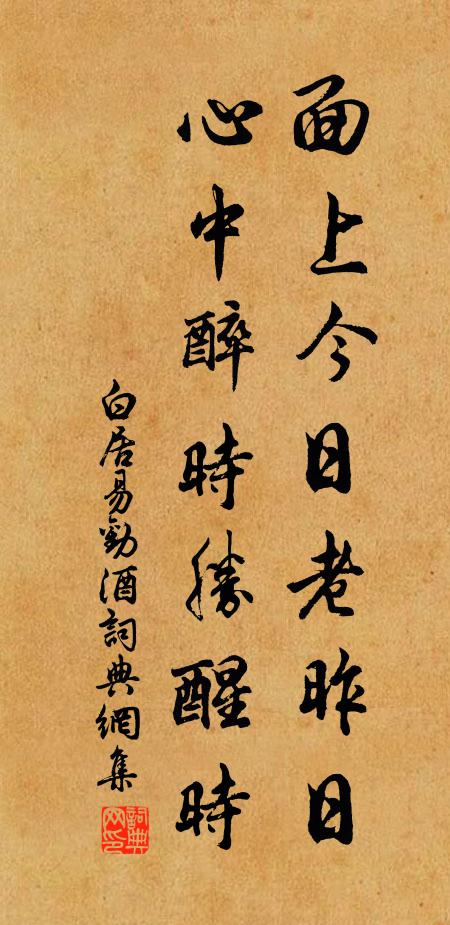 面上今日老昨日
心中醉時勝醒時
白居易勸酒詞典網集
詞典網印